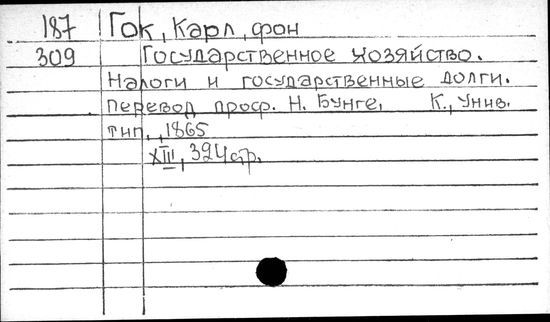 187 Гок, Карл, фон
309 Государственное хозяйство.
Налоги и государственные долги.
Перевод проф. Н. Бунге, К., Унив.
тип., 1865
XIII, 324 стр.